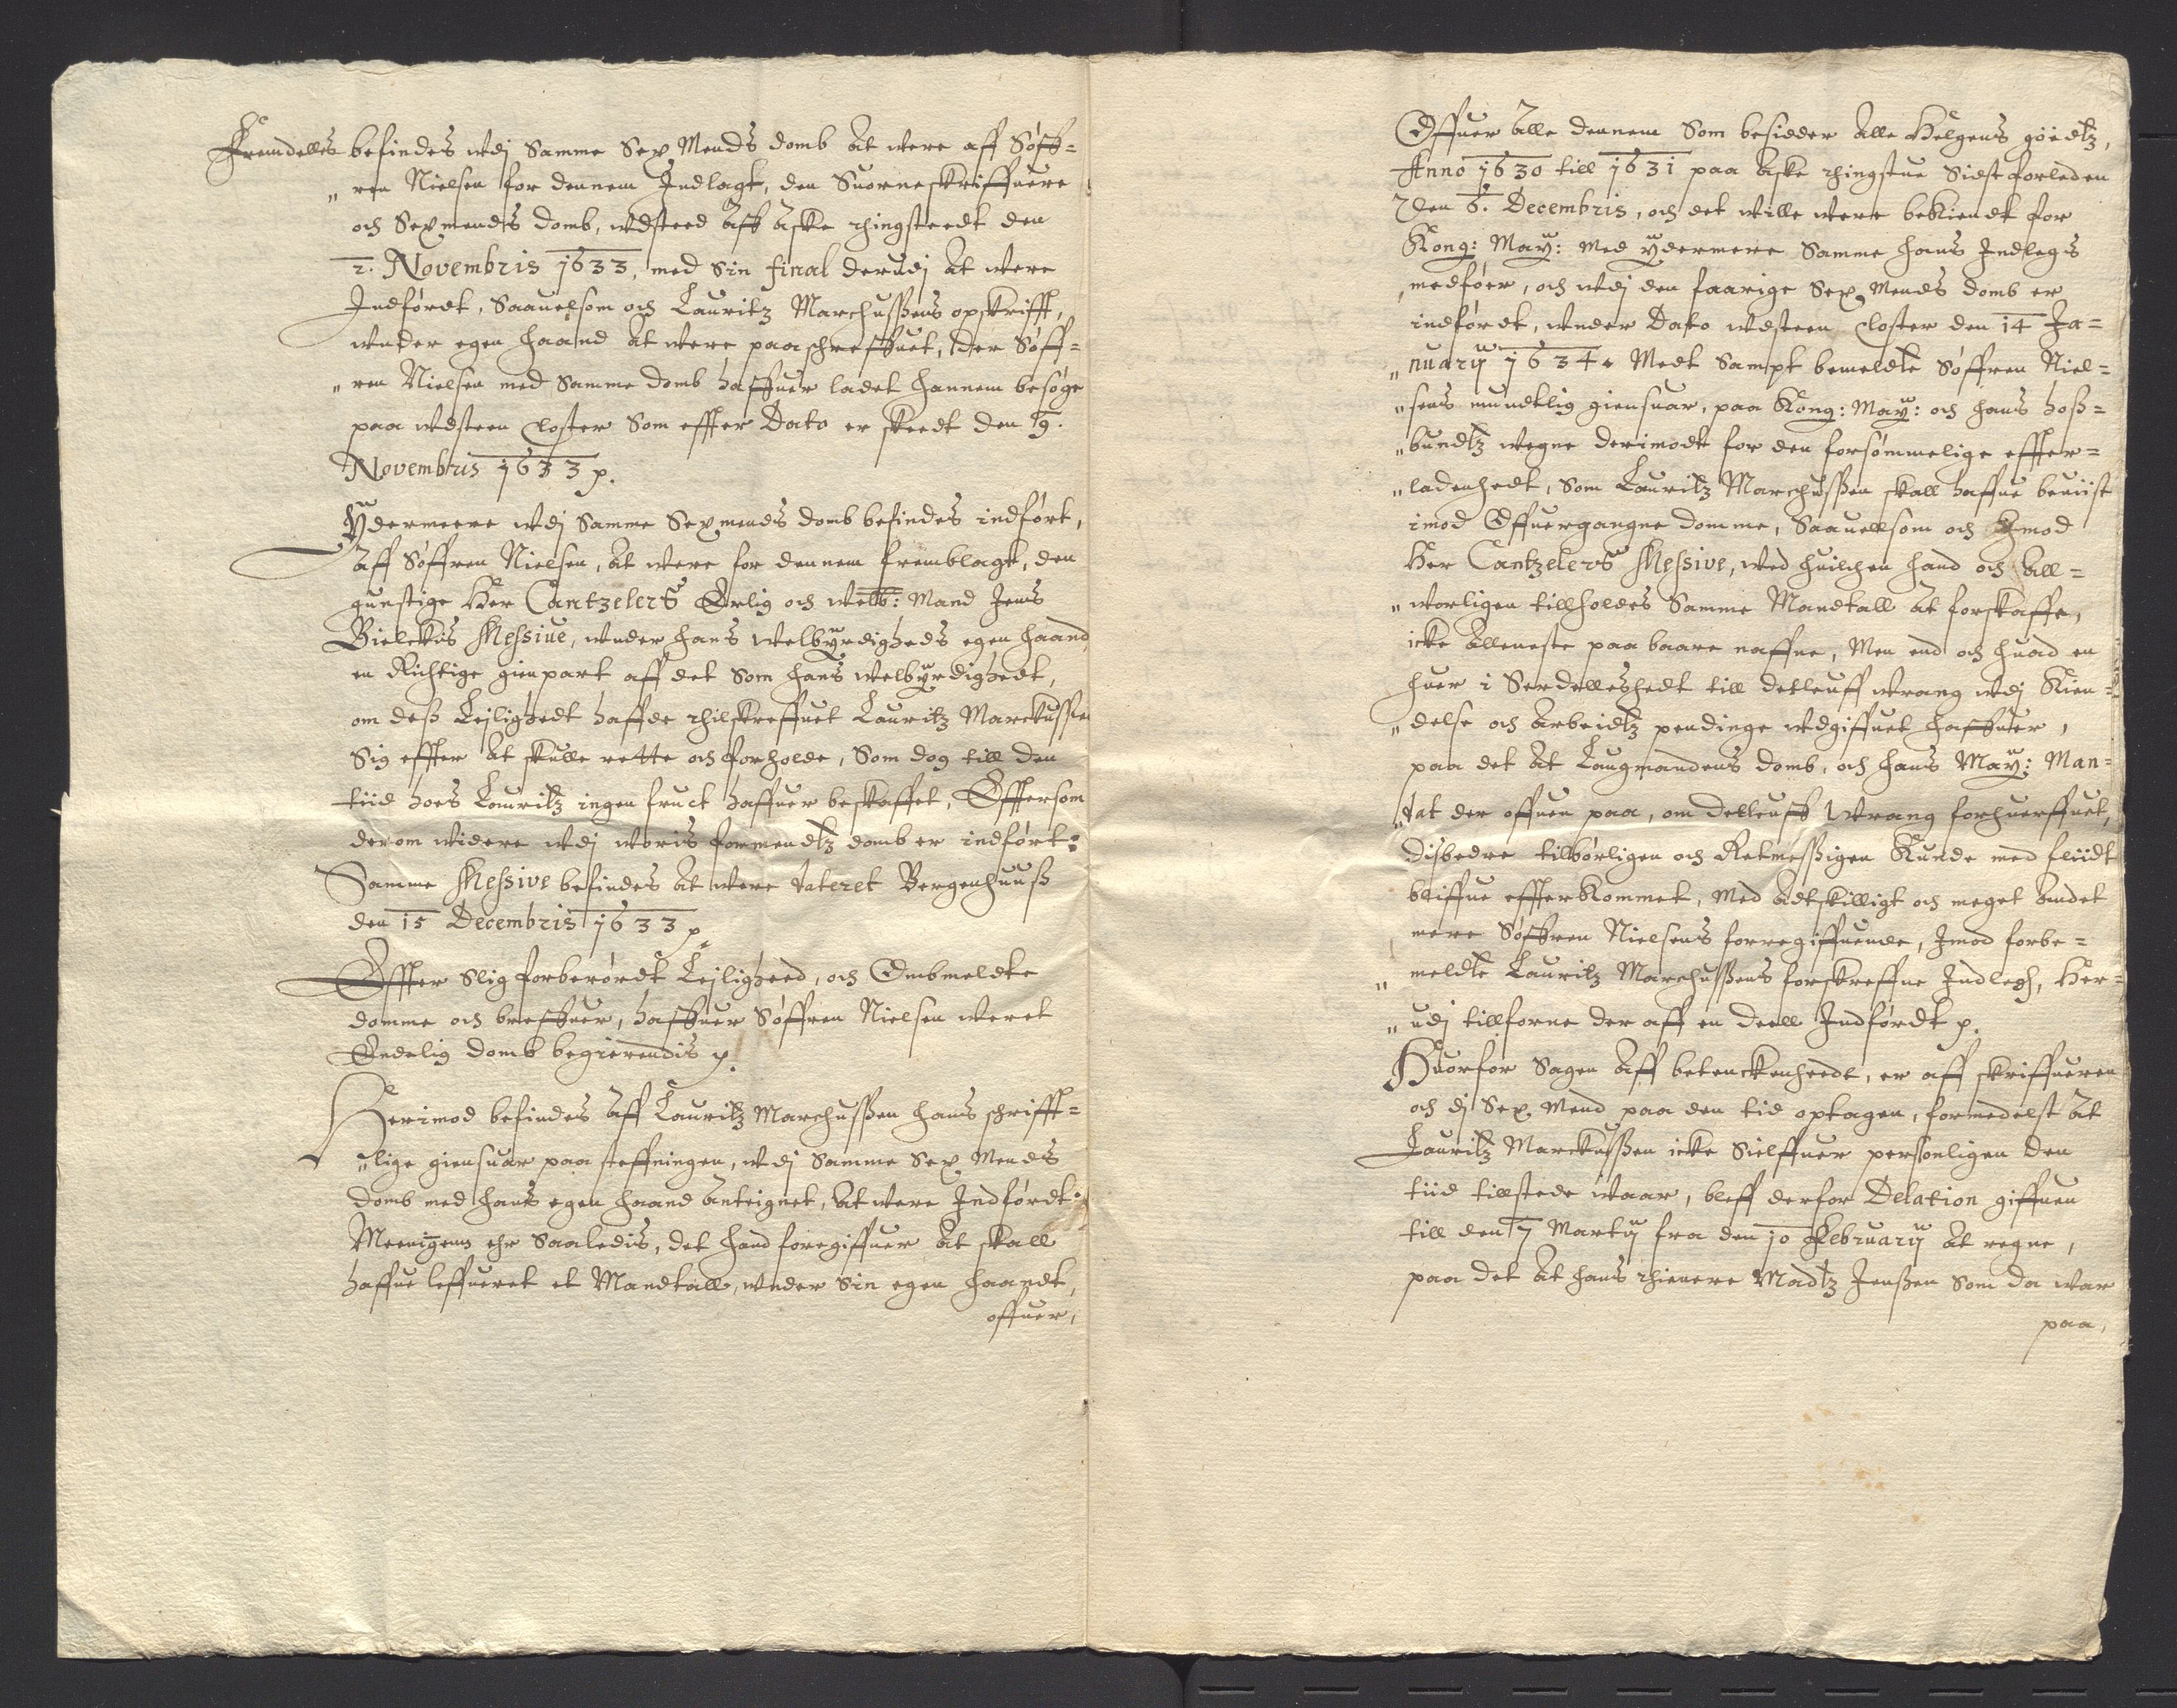 Fremdelles befindes wdj Samme Sex Mends domb at were aff Søff=
„ren Nielsen for dennem Indlagt, den Suorneskriffuere
och Sexmends domb, wdsteed aff Aske thingsteedt den
2. Novembris 1633, med Sin final derudj at were
Indførdt, Saauelsom och Lauritz Marchussens opskrifft,
wnder egen haand at were paaschreffuet, der Søff=
„ren Nielsen med Samme domb haffuer ladet hannem besøge
paa wdsteen closter Som effter Dato er skeedt den 19.
Novembris 1633 p.
Ydermeere wdj Samme Sexmends domb befindes indført,
Aff Søffren Nielsen, at were for dennem fremblagt, den
gunstige Her Cantzelers Erlig och welb: Mand Jens
Bielckis Messiue, wnder hans welbyrdigheds egen haand,
en Richtige gienpart aff det Som hans welbyrdighedt,
om dess Lejlighedt haffde thilskreffuet Lauritz Marckussen
Sig effter at skulle rette och forholde, Som dog till den
tiid hoes Lauritz ingen fruct haffuer beskaffet, Efftersom
derom widere wdj woris formendtz domb er indført:
Samme Messive befindes at were dateret Bergenhuuss
den 15 Decembris 1633 p
Effter Slig forberørdt Lejligheed, och Ombmeldte
domme och breffuer, haffuer Søffren Nielsen weret
Endelig domb begierendis p.
Herimod befindes aff Lauritz Marchussen hans schrifft=
„lige giensuar paa steffningen, wdj Samme Sex Mends
domb med hans egen haand anteignet, at were Indførdt:
Meenigenn ehr Saaledis, det hand foregiffuer at skall
haffue leffueret et Mandtall, wnder Sin egen haandt,
offuer,
Offuer alle dennem Som besidder alle Helgens goedtz,
Anno 1630 till 1631 paa Aske thingstue Sidst forleden
den 6. Decembris, och det wille were bekiendt for
Kong: May: med ydermere Samme hans Indlegs
medføer, och wdj den faarige Sex Mends domb er
indførdt, wnder Dato wdsteen closter den 14 Ja=
„nuary 1634. Medt Sampt bemeldte Søffren Niel=
„sens mundtlig giensuar, paa Kong: May: och hans hoss=
„bundtz wegne derimodt for den forsømmelige effter=
„ladenhedt, Som Lauritz Marchussen skall haffue beuiist
imod Offuergangne domme, Saauellsom och Imod
Her Cantzelers Messive, wed huilchen hand och all=
„worligen tillholdes Samme Mandtall at forskaffe,
icke alleneste paa baare naffne, Men end och huad en
huer i Serdelleshedt till detleuff wrang wdj Kien=
„delse och arbeidtz pendinge wdgiffuet haffuer,
paa det at Laugmandens domb, och hans May: Man=
„dat der offuen paa, om detleuff Wrang forhuerffuet,
Disbedre tilbørligen och Retmessigen Kunde med fliidt
bliffue effterkommet, Med adtskilligt och meget andet
mere Søffren Nielsens forregiffuende, Imod forbe=
„meldte Lauritz Marchussens forskreffne Indlegh, Her=
„udj tillforne der aff en deell Indførdt p.
Huorfor Sagen aff betenckenheedt, er aff skriffueren
och dj Sex Mend paa den tid optagen, formedelst at
Lauritz Marckussen icke Sielffuer personligen den
tiid tillstede waar, bleff derfor Delation giffuen
till den 7 Marty fra den 10 February at regne,
paa det at hans thienere Madtz Jenssen Som da war
paa,